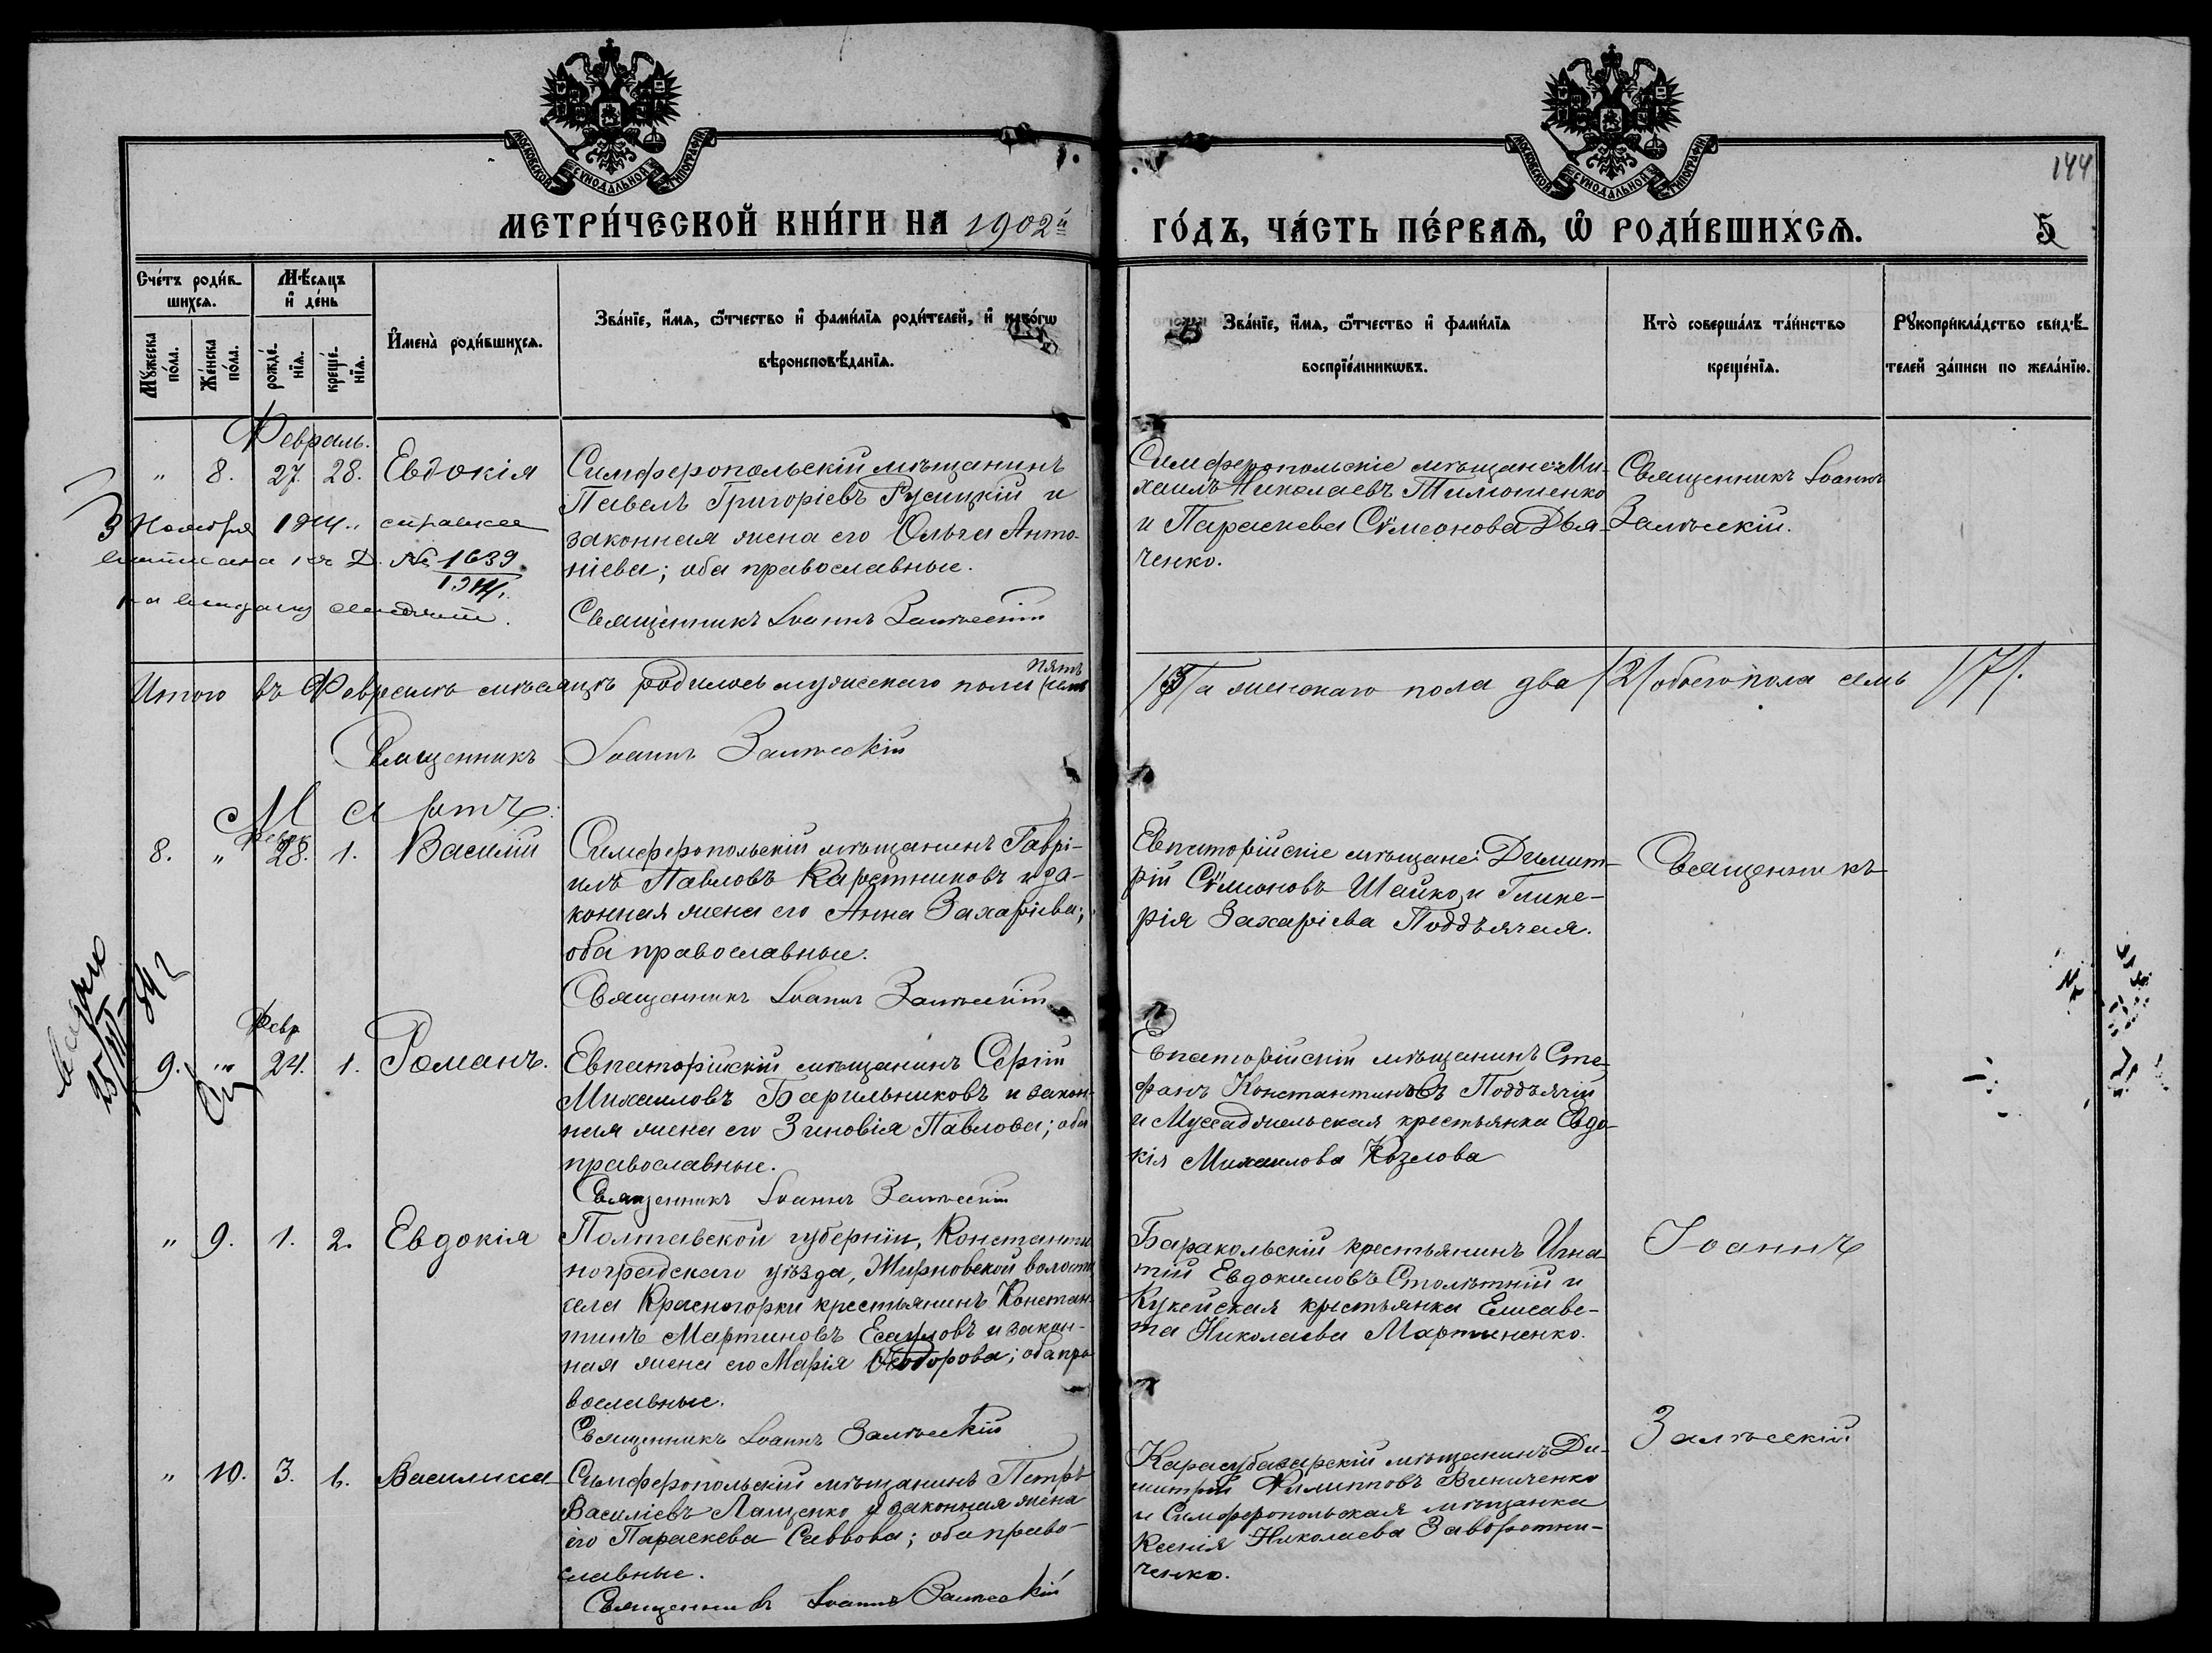 МОСКОВСКОЙ СУНОДАЛЬНОЙ ТИПОГРАФІИ
МОСКОВСКОЙ СУНОДАЛЬНОЙ ТИПОГРАФІИ
144
МЕТРИ́ЧЕСКОЙ КНИ́ГИ НА 1902й
ГО́ДЪ, ЧА́СТЬ ПЕ́РВАѦ, Ѽ РОДИ́ВШИХСѦ.
5
Сче́тъ роди́в-
шихсѧ.
Мѣ́сѧцъ
и҆ де́нь
Мꙋ́жеска по́ла.
Же́нска по́ла.
рожде́-
нїѧ.
креще́-
нїѧ.
И҆мена̀ роди́вшихсѧ.
Зва́нїе, и҆́мѧ, ѻ҆́тчество и҆ фами́лїѧ роди́телей, и҆ како́гѡ
вѣроисповѣ́данїѧ.
Зва́нїе, и҆́мѧ, ѻ҆́тчество и҆ фами́лїѧ
воспрїе́мникѡвъ.
Кто̀ соверша́лъ та́инство
креще́нїѧ.
Рꙋкоприкла́дство свидѣ́-
телей за́писи по жела́нїю.
Февраль.
" 8. 27. 28. Евдокія
Симферопольскій мѣщанинъ
Павелъ Григоріевъ Русицкій и
законная жена его Ольга Анто-
ніева; оба православные.
Священникъ Іоаннъ Залѣсскій
Симферопольскіе мѣщане: Ми-
хаилъ Николаевъ Тимошенко
и Параскева Сѵмеонова Дья-
ченко.
Священникъ Іоаннъ
Залѣсскій.
3 Ноября 1914. справка
выписана къ Д. № 1639
1914.
на выдачу
Итого въ Февралѣ мѣсяцѣ родилось мужескаго пола пять
/5/ а женскаго пола два /2/ обоего пола семь /7/.
Священникъ Іоаннъ Залѣсскій
Мартъ:
8. " Февр. 28. 1. Василій
Симферопольскій мѣщанинъ Гаврі-
илъ Павловъ Каретниковъ и за-
конная жена его Анна Захаріева;
оба православные.
Священникъ Іоаннъ Залѣсскій
Евпаторійскіе мѣщане: Димит-
рій Сѵмеоновъ Шайко, и Глике-
рія Захаріева Поддъячая.
Священникъ
25/VII
9. " Февр 24. 1. Романъ.
Евпаторійскій мѣщанинъ Сергій
Михаиловъ Барильниковъ и закон-
ная жена его Зиновія Павлова; оба
православные.
Священникъ Іоаннъ Залѣсскій
Евпаторійскій мѣщанинъ Сте-
фанъ Константиновъ Поддъячій
и Мусаджельская крестьянка Евдо-
кія Михаилова Козлова
" 9. 1. 2. Евдокія
Полтавской губерніи, Константи-
ноградскаго уѣзда, Жирновской волости
села Красногорки крестьянинъ Констан-
тинъ Мартиновъ Есауловъ и закон-
ная жена его Марія Ѳеодорова; оба пра-
вославные.
Священникъ Іоаннъ Залѣсскій
Баракольскій крестьянинъ Игна-
тій Евдокимовъ Столѣтній и
Кукейская крестьянка Елисаве-
та Николаева Мартиненко.
Іоаннъ
" 10. 3. 6. Василисса
Симферопольскій мѣщанинъ Петръ
Василіевъ Лащенко и законная жена
его Параскева Саввова; оба право-
славные.
Священникъ Іоаннъ Залѣсскій
Карасубазарскій мѣщанинъ Ди-
митрій Филипповъ Виниченко
и Симферопольская мѣщанка
Ксенія Николаева Заворотни-
ченко.
Залѣсскій